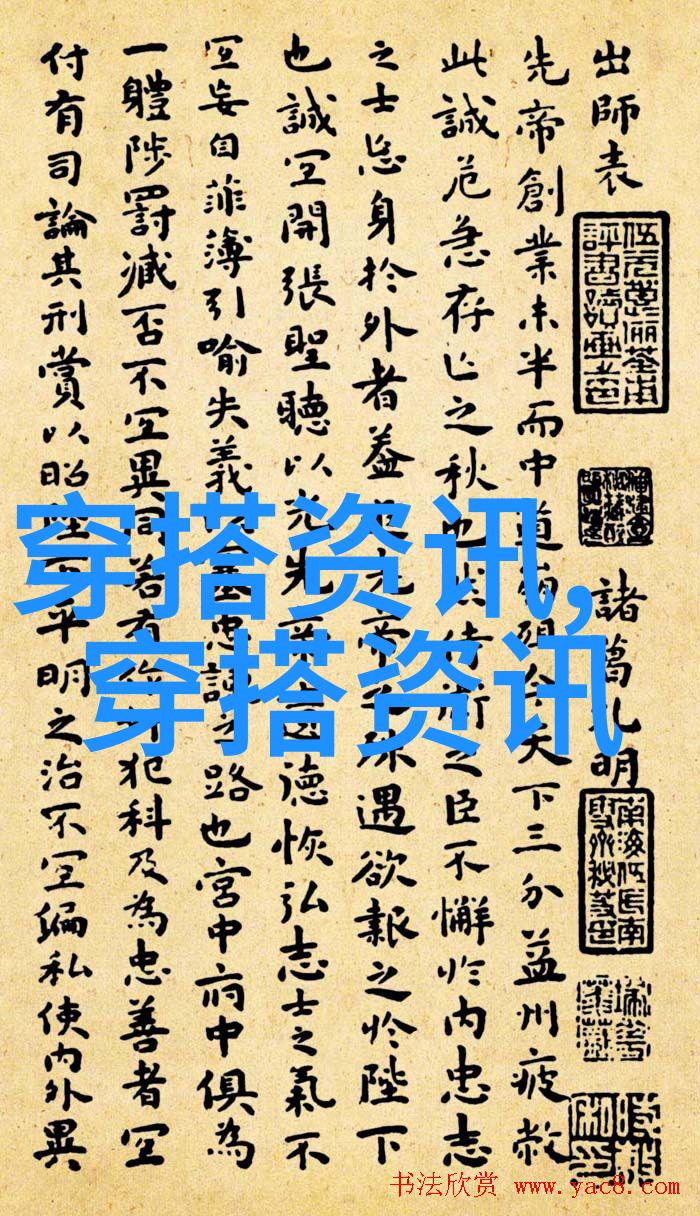 出師表
諸葛孔明
先帝創業未半而中道崩殂今天下三分益州疲敝
此誠危急存亡之秋也然侍衛之臣不懈於内忠志
之士忘身於外者蓋追先帝之殊遇欲報之於陛下
也誠宜開張聖聽以光先帝遺德恢弘志士之氣不
宜妄自菲薄引喻失義以塞忠諫之路也宮中府中俱為
一體陟罰減否不宜異同若有作奸犯科及為忠善者宜
付有司論其刑賞以昭陛下平明之治不宜編私使内外異
穿搭资讯,
穿搭资讯
书法欣赏 www.yac8.com